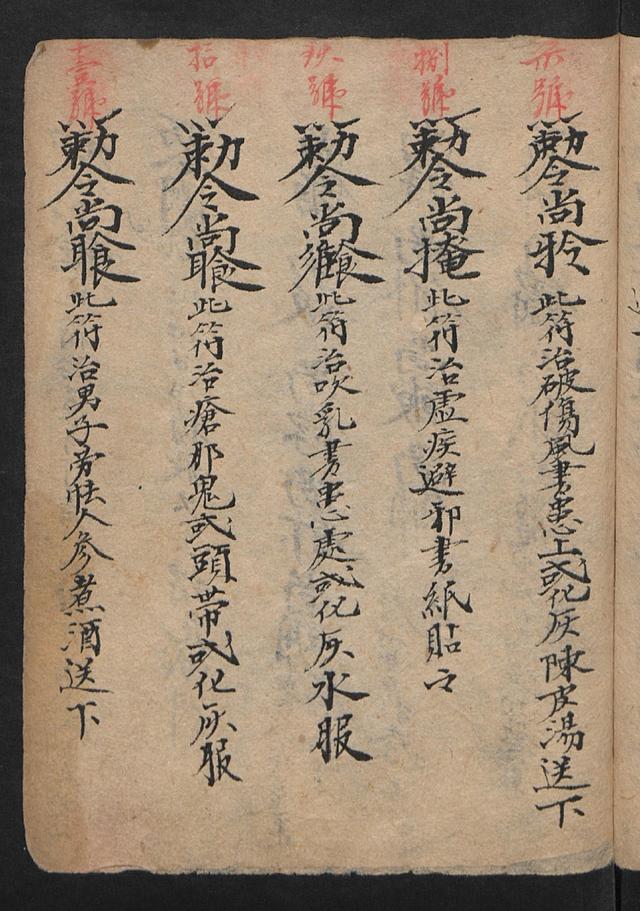 號
勅令尚 此符治破傷風書患上或化灰陳皮湯送下
捌號
勅令尚掩 此符治虛疾避邪書紙貼
玖號
勅令尚 此符治吹乳書患處或化灰水服
拾號
勅令尚 此符治瘡邪鬼或頭帶或化灰服
壹號
勅令尚 此符治男子勞怯人參煮酒送下